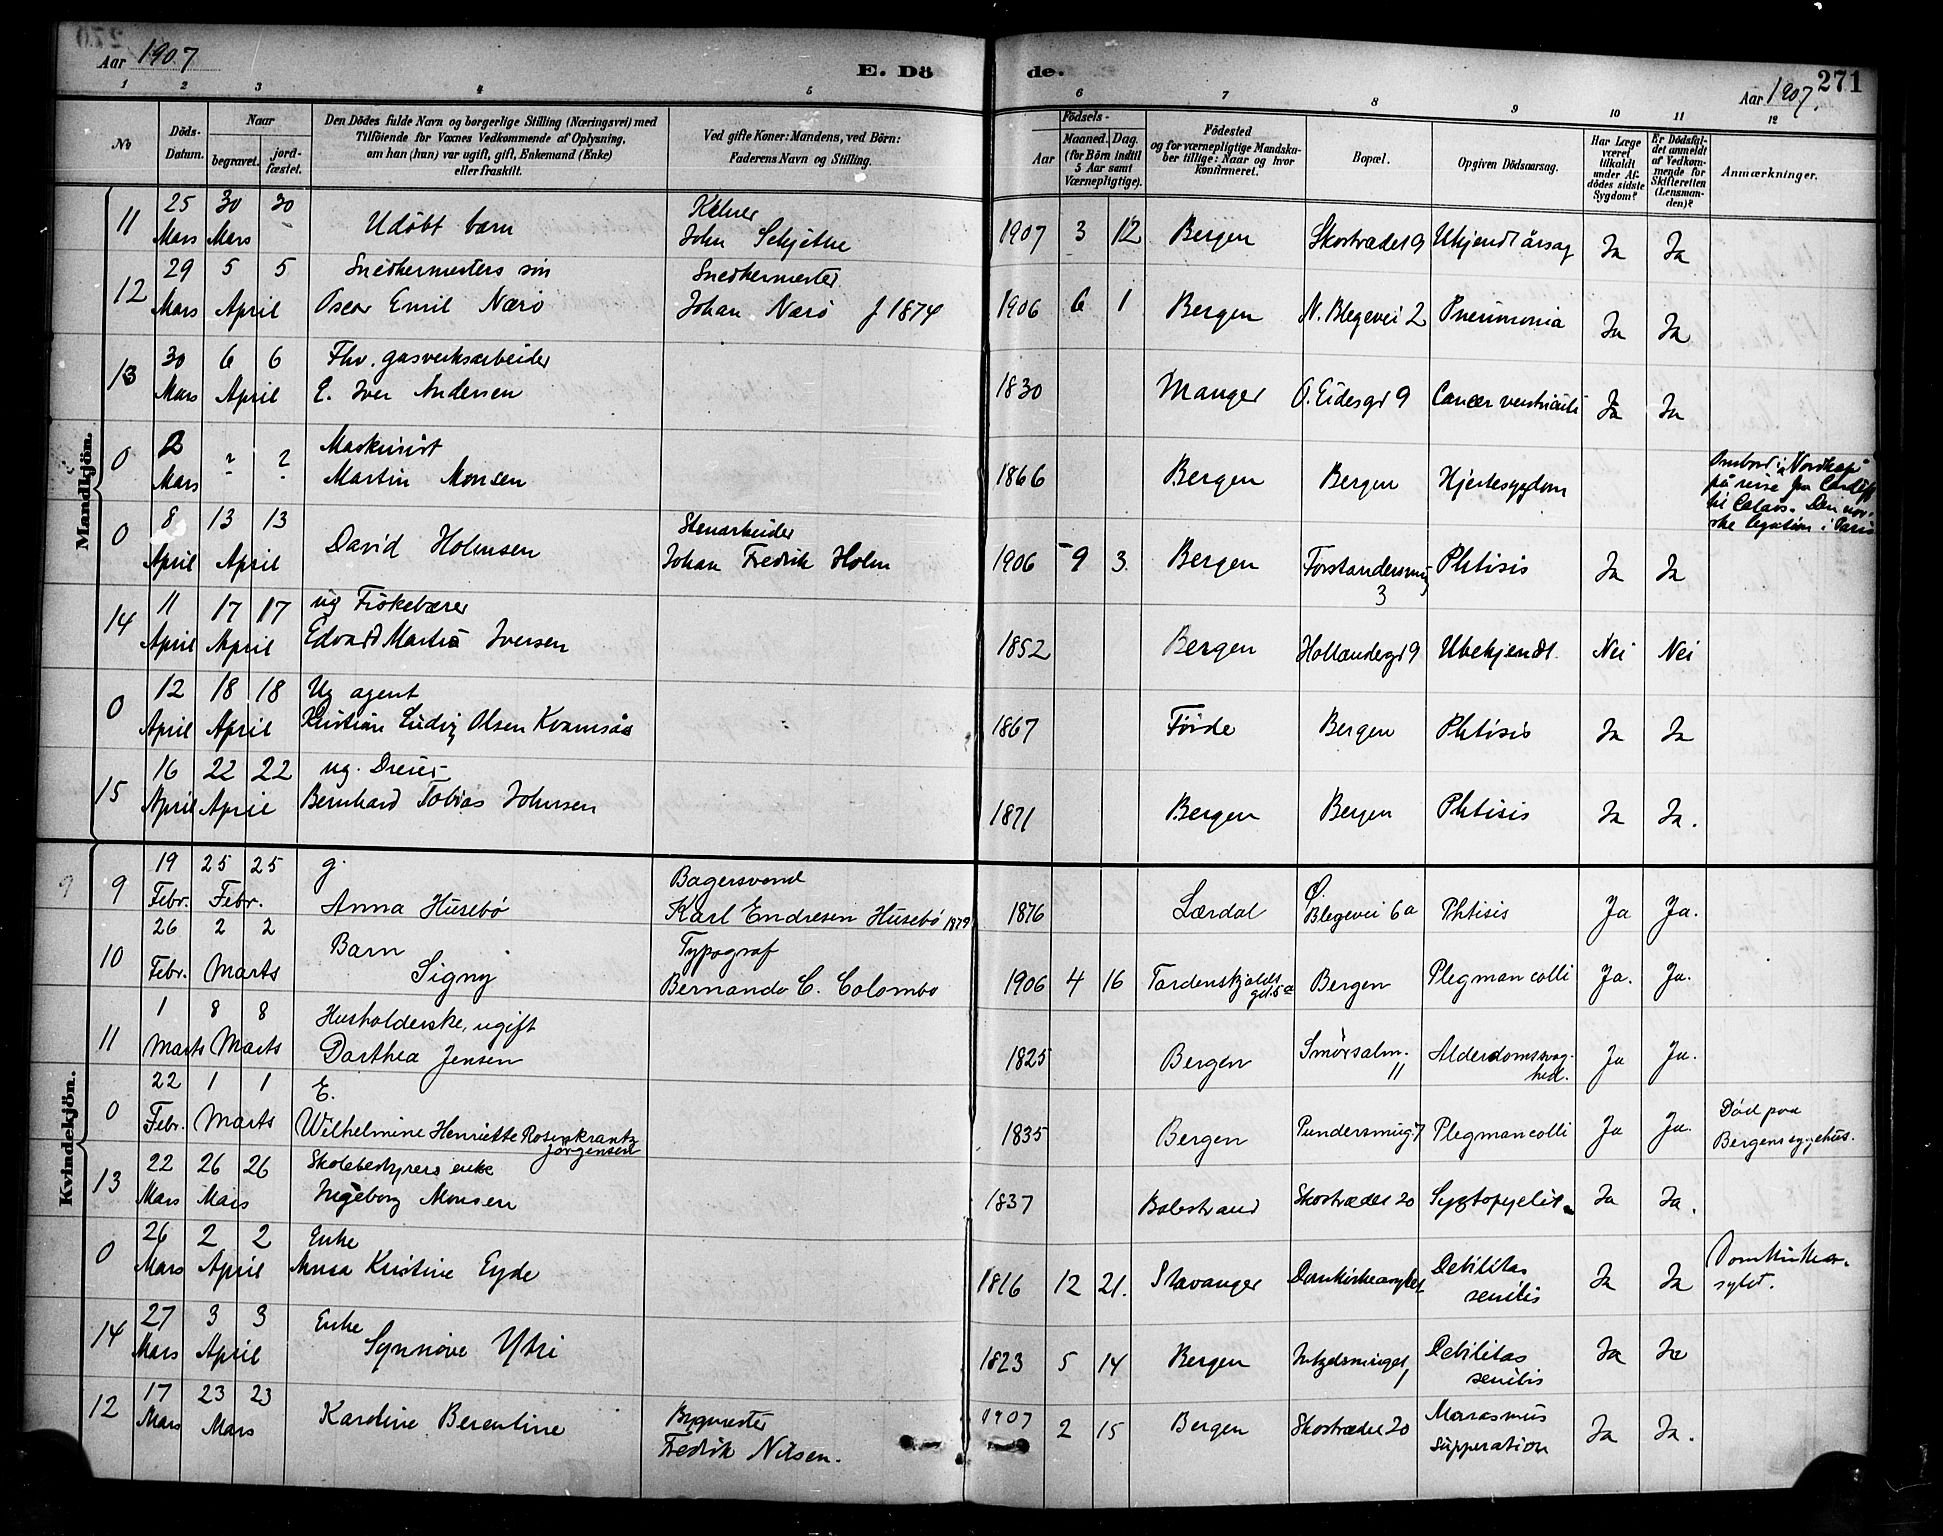 Aar 1907
E. Döde.
Aar 1907.
271
1 2 3 4 5 6 7 8 9 10 11 12
No
Döds-Datum.
Naar
begravet.
jord-fæstet.
Den Dödes fulde Navn og borgerlige Stilling (Næringsvei) med
Tilföiende for Voxnes Vedkommende af Oplysning,
om han (hun) var ugift, gift, Enkemand (Enke)
eller fraskilt.
Ved gifte Koner: Mandens, ved Börn:
Faderens Navn og Stilling.
Födsels-
Aar
Maaned. Dag.
(for Börn indtil
5 Aar samt
Værnepligtige).
Födested
og for værnepligtige Mandska-
ber tillige: Naar og hvor
konfirmeret.
Bopæl.
Opgiven Dödsaarsag.
Har Læge
været
tilkaldt
under Af-
dödes sidste
Sygdom?
Er Dödsfal-
det anmeldt
af Vedkom-
mende for
Skifteretten
(Lensman-
den)?
Anmærkninger.
Mandkjön.
11 25 Mars 30 Mars 30
Udöbt barn
Kelner
John
1907 3 12 Bergen Skostrædet 9 Ukjendt årsag Ja Ja
12 29 Mars 5 April 5
Snedkermesters sön
Oscar Emil Nærö
Snedkermester
Johan Nærö f 1874
1906 6 1 Bergen N. Blegevei 2 Pneumonia Ja Ja
13 30 Mars 6 April 6
Fhv. gasverksarbeider
E. Iver Andersen
1830 Manger O. Eidesgd 9 Cancer ventriculi Ja Ja
0 2 Mars ? ?
Maskinist
Martin Monsen
1866 Bergen Bergen Hjertesygdom
Ombord i "Nordkap"
på reise fra Cardiff
til Calais. Den nor-
ske legation i Paris
0 8 April 13 April 13
David Holmsen
Stenarbeider
Johan Fredrik Holm
1906 9 3. Bergen Forstandersmug 3 Phtisis Ja Ja
14 11 April 17 April 17
ug Fiskebærer
Edvard Martin Iversen
1852 Bergen Hollendergd 9 Ubekjendt. Nei Nei
0 12 April 18 April 18
Ug agent
Kristian Ludvig Olsen Kvamsås
1867 Förde Bergen Phtisis Ja Ja
15 16 April 22 April 22
ug. Dreier
Bernhard Tobias Johnsen
1871 Bergen Bergen Phtisis Ja Ja.
Kvindekjön.
9 9 19 Febr. 25 Febr. 25
g.
Anna Husebö
Bagersvend
Karl Endresen Husebö 1879
1876 Lærdal Ö. Blegevei 6a Phtisis Ja Ja.
10 26 Febr. 2 Marts 2
Barn
Signy
Typograf
Bernando C. Colombo
1906 4 16 Tordenskjolds gd. 5a Bergen Plegman colli Ja. Ja.
11 1 Marts 8 Marts 8
Husholderske, ugift
Dorthea Jensen
1825 Bergen Smörsalm. 11 Alderdomssvag-hed. Ja Ja.
0 22 Febr. 1 Marts 1
E.
Wilhelmine Henriette Rosenkrantz
Jörgensen
1835 Bergen Pundersmug 7 Plegman colli Ja Ja.
Död paa
Bergens sygehus.
13 22 Mars 26 Mars 26
Skolebestyrers enke
Ingeborg Monsen
1837 Balestrand Skostrædet 20 Ja Ja.
0 26 Mars 2 April 2
Enke
Anna Kristine Eyde
1816 12 21. Stavanger Domkirkeasylet Debilitas
senilis Ja Ja
Domkirkea-
sylet.
14 27 Mars 3 April 3
Enke
Synnöve Ytri
1823 5 14 Bergen 1 Debilitas
senilis Ja Ja
12 17 Mars 23 Mars 23
Karoline Berentine
Bygmester
Fredrik Nilsen.
1907 2 15 Bergen Skostrædet 20 Marasmus
supperation Ja Ja.